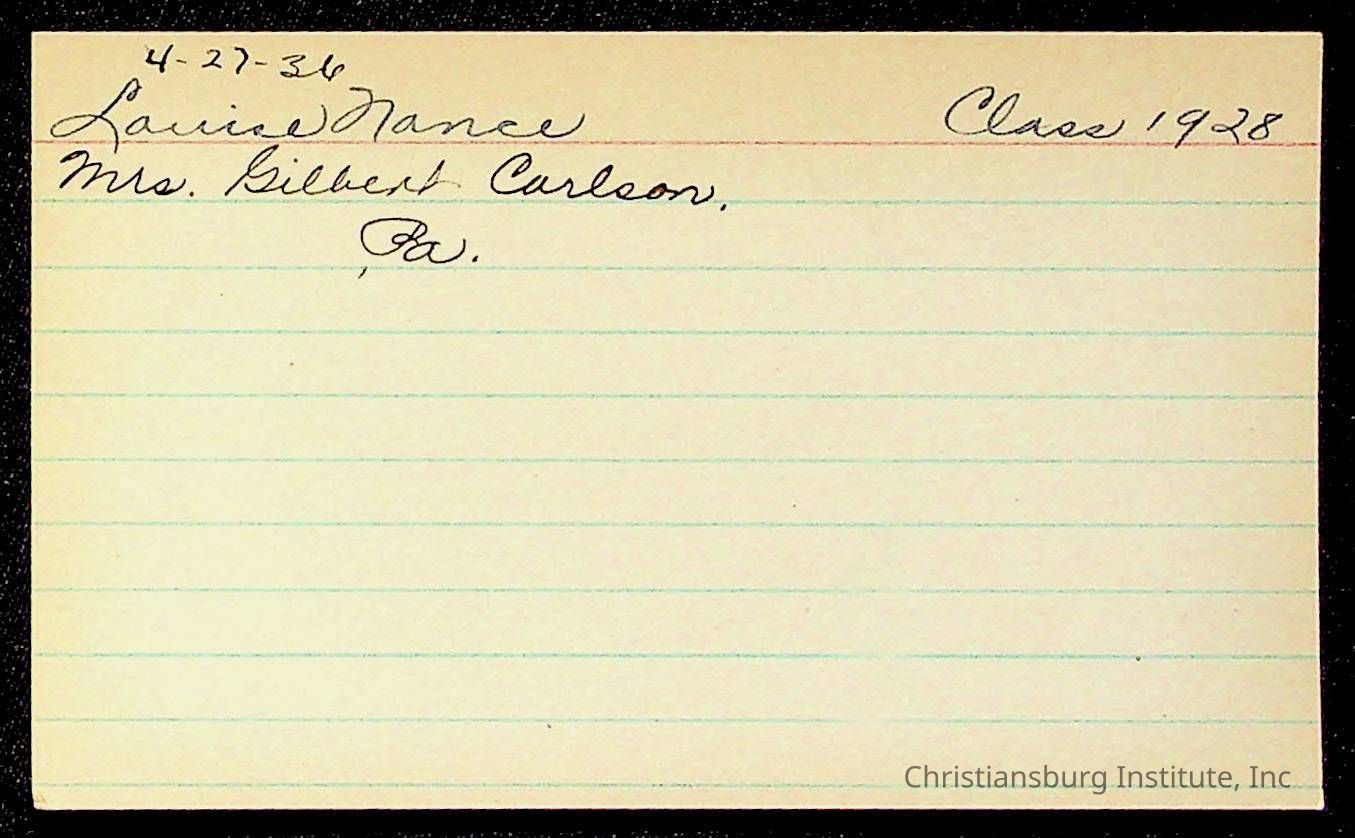 4-27-36
Louise Nance Class 1928
Mrs. Gilbert Carlson.
Pa.
Christiansburg Institute, Inc